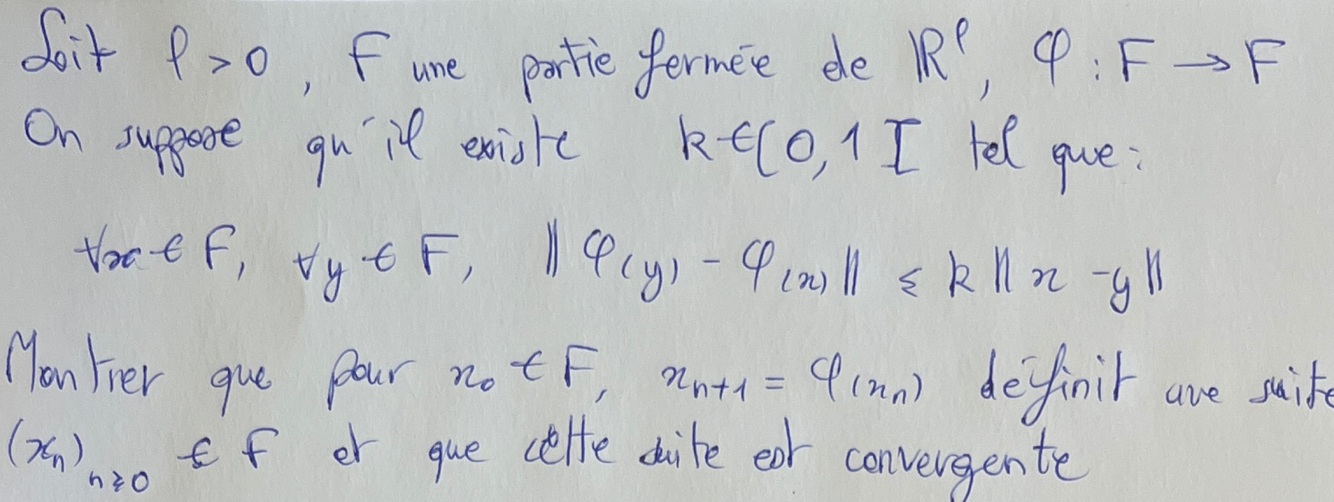 Soit p > 0, F une partie fermée de ℝᵖ, φ : F → F
On suppose qu'il existe k ∈ [0,1[ tel que :
∀x ∈ F, ∀y ∈ F, ‖φ(y) - φ(x)‖ ≤ k‖x - y‖
Montrer que pour x₀ ∈ F, xₙ₊₁ = φ(xₙ) définit une suite
(xₙ)ₙ≥₀ ∈ F et que cette suite est convergente